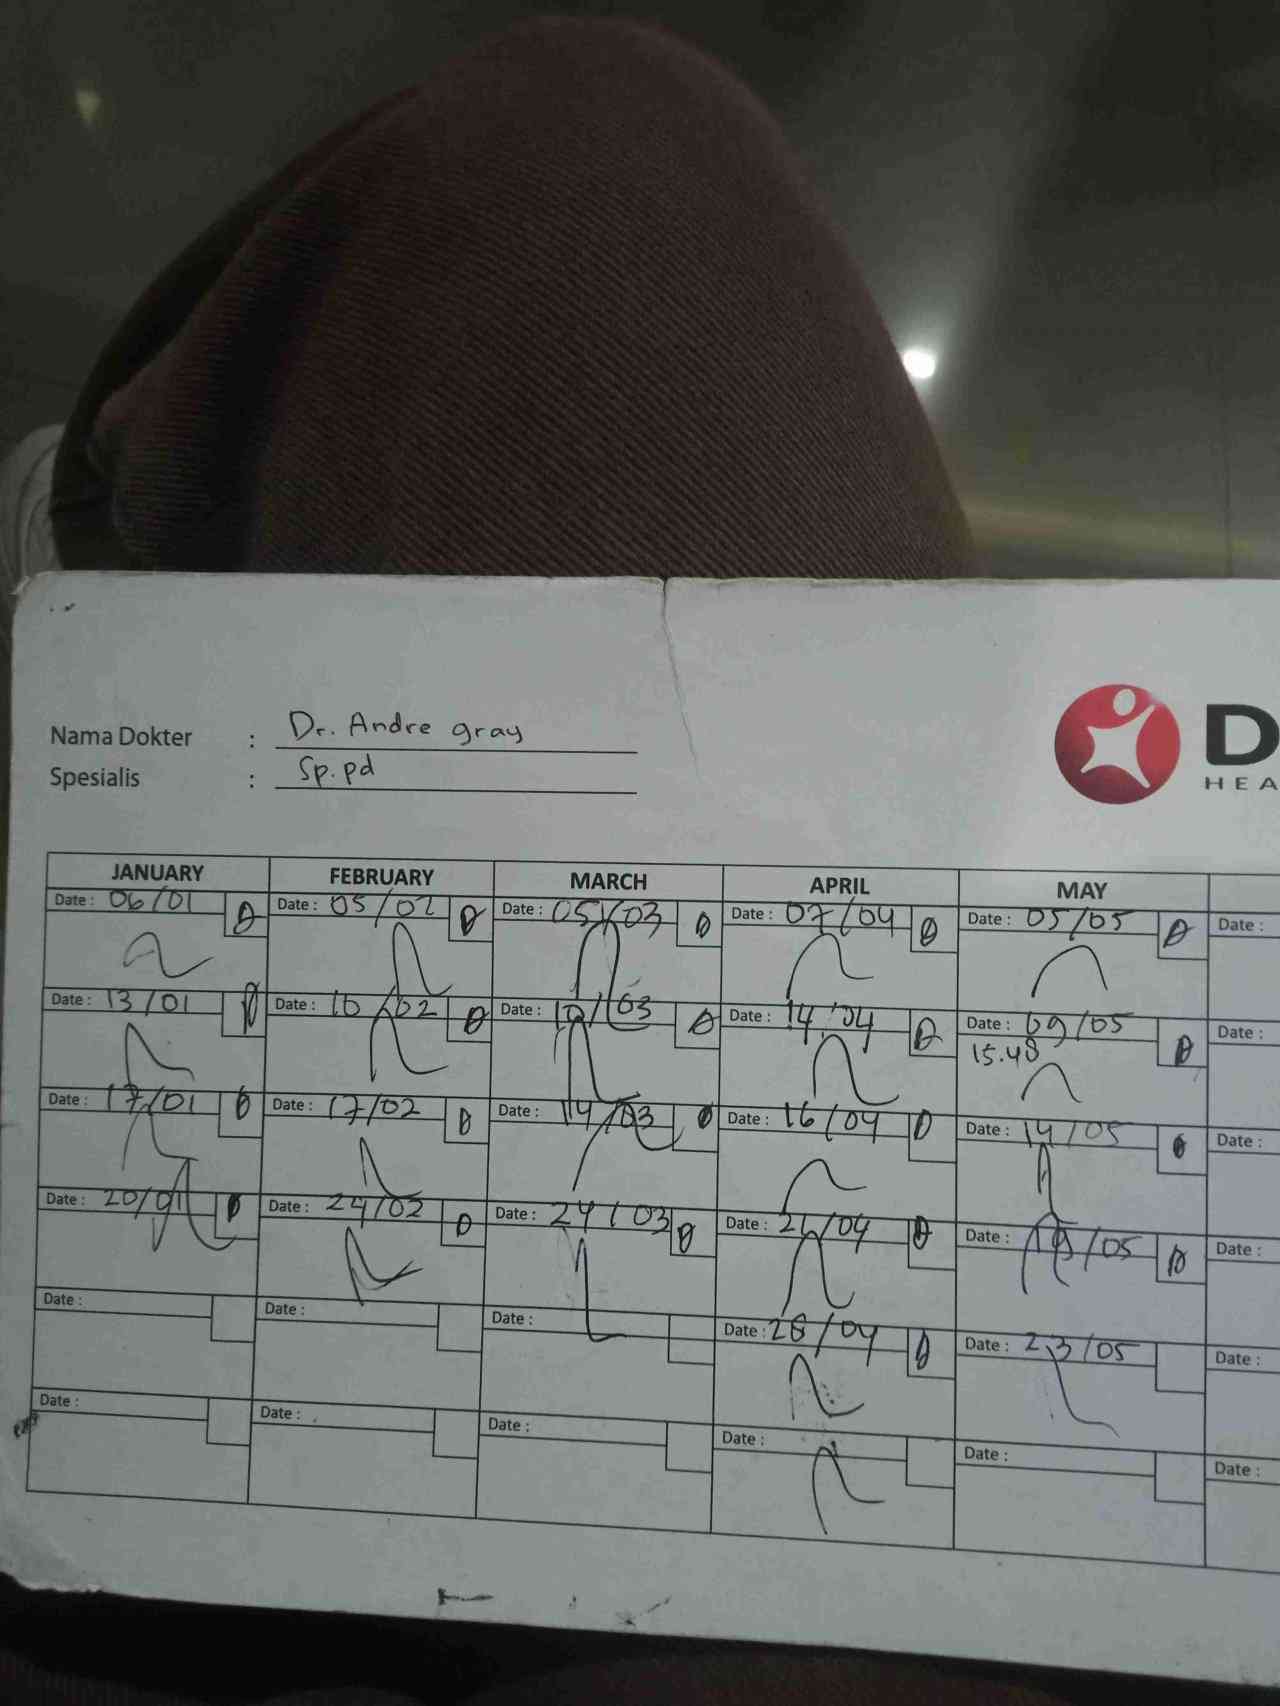 Nama Dokter : Dr. Andre gray
Spesialis : Sp.pd
D
HEA
JANUARY FEBRUARY MARCH APRIL MAY
Date : 06/01 Date : 05/02 Date : 05/03 Date : 07/04 Date : 05/05 Date :
Date : 13/01 Date : 10/02 Date : 10/03 Date : 14/04 Date : 09/05 Date :
15.48
Date : 17/01 Date : 17/02 Date : 14/03 Date : 16/04 Date : 14/05 Date :
Date : 20/01 Date : 24/02 Date : 24/03 Date : 21/04 Date : 19/05 Date :
Date : Date : Date : Date : 28/04 Date : 23/05 Date :
Date : Date : Date : Date : Date : Date :